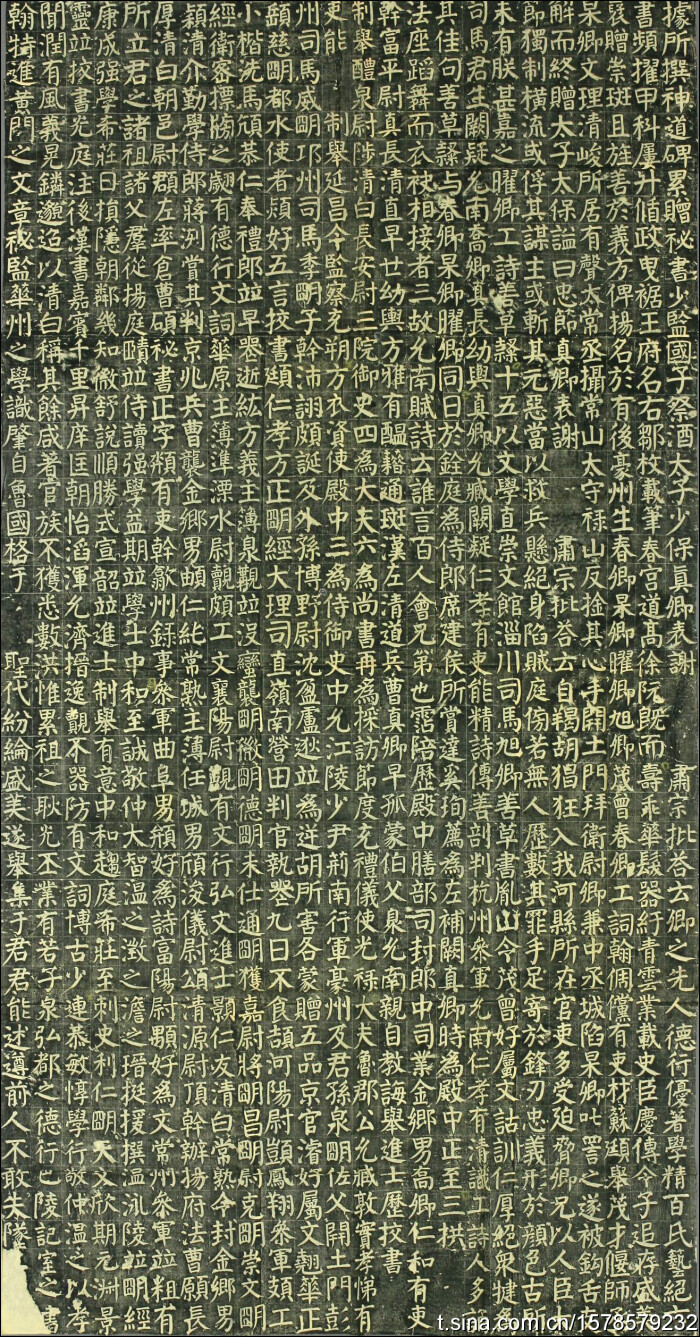 據所撰神道碑累贈祕書少監國子祭酒太子少保真卿表謝 肅宗批荅云卿之先人德行優著學精百氏藝絕六
書頻擢甲科屢升循政曳裾王府名右鄒枚載筆春宮道高徐阮既而壽乖華髮器紆青雲業載史臣慶傳令子追存盛
褒贈崇班且旌善於義方俾揚名於有後豪州生春卿杲卿曜卿旭卿茂曾春卿工詞翰倜儻有吏材蘇頲舉茂才偃師丞
杲卿文理清峻所居有聲太常丞攝常山太守祿山反捦其心手開土門拜衛尉卿兼中丞城陷杲卿叱詈之遂被鈎舌
解而終贈太子太保謚曰忠節真卿表謝 肅宗批荅云自羯胡猖狂入我河縣所在官吏多受迫脅卿兄以人臣大
節獨制橫流或俘其謀主或斬其元惡當以救兵懸絕身陷賊庭傍若無人歷數其罪手足寄於鋒刃忠義形於顏色古所
未有朕甚嘉之曜卿工詩善草隸十五以文學直崇文館淄川司馬旭卿善草書胤山令茂曾好屬文詁訓仁厚絕眾犍為
司馬君生闕疑允南喬卿真長幼輿真卿允臧闕疑仁孝有吏能精詩傳善剖判杭州參軍允南仁孝有清識工詩人多誦
其佳句善草隸与春卿杲卿曜卿同日於銓庭為侍郎席建侯所賞達奚珣薦為左補闕真卿時為殿中正至三拱
法座蹈舞而衣袂相接者三故允南賦詩云誰言百人會兄弟也霑陪歷殿中膳部司封郎中司業金鄉男喬卿仁和有吏
幹富平尉真長清直早世幼輿方雅有醞藉通班漢左清道兵曹真卿早孤蒙伯父臮允南親自教誨舉進士歷挍書
制舉醴泉尉陟清白長安尉三院御史四為大夫六為尚書再為採訪節度充禮儀使光祿大夫魯郡公允臧敦實孝悌有
吏能 制舉延昌令監察充朔方衣資使殿中三為侍御史中允江陵少尹荊南行軍豪州及君孫泉明佐父開土門彭
州司馬威明邛州司馬季明子幹沛詡頗誕及外孫博野尉沈盈盧逖並為逆胡所害各蒙贈五品京官濬好屬文翹華正
頤慈明都水使者熲好五言挍書頲仁孝方正明經大理司直嶺南營田判官執喪九日不食頡河陽尉顗鳳翔參軍頍工
小楷洗馬頎恭仁奉禮郎並早喪逝紘方義主簿泉觀並沒蠻襲明徵明德明未仕通明獲嘉尉將明昌明尉克明崇文明
經衛密摽牓之翽有德行文詞華原主薄準溧水尉覿頗工文襄陽尉覬有文行弘文進士顥仁友清白常熟令封金鄉男
穎清介勤學侍郎蔣洌賞其判京兆兵曹龔金鄉男䪴仁純常熟主薄任城男頎浚儀尉頌清源尉頂幹辦揚府法曹願長
厚清白朝邑尉群左率倉曹碩祕書正字頛有吏幹歙州錄事參軍曲阜男頒好為詩富陽尉顯好為文常州參軍並粗有
所立君之諸祖諸父群從揚庭頤並侍讀強學益期並學士中和至誠敬仲大智溫之澂之澹之瑨挺援撰溫泳陵並明經
康成強學希莊日損隱朝鄰幾知微舒說順勝式宣韶並進士制舉有意中和趨庭希莊至刺史利仁明天文欣期元淑景
靈並挍書光庭注後漢書嘉賓千里昇庠匡朝怡滔渾允濟搢逸覿不器防有文詞博古少連恭敏惇學行敬仲溫之以孝
聞潤有風義晃鏻邈迢以清白稱其餘咸著官族不獲悉數洪惟累祖之耿光丕業有若子泉弘都之德行巴陵記室之書
翰特進黃門之文章祕監華州之學識肇自魯國格于 聖代紛綸盛美遂舉集于君君能述遵前人不敢失隊
t.sina.com.cn/1578579232